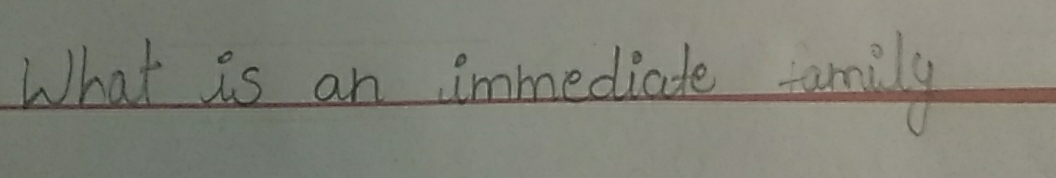 What is an immediate family